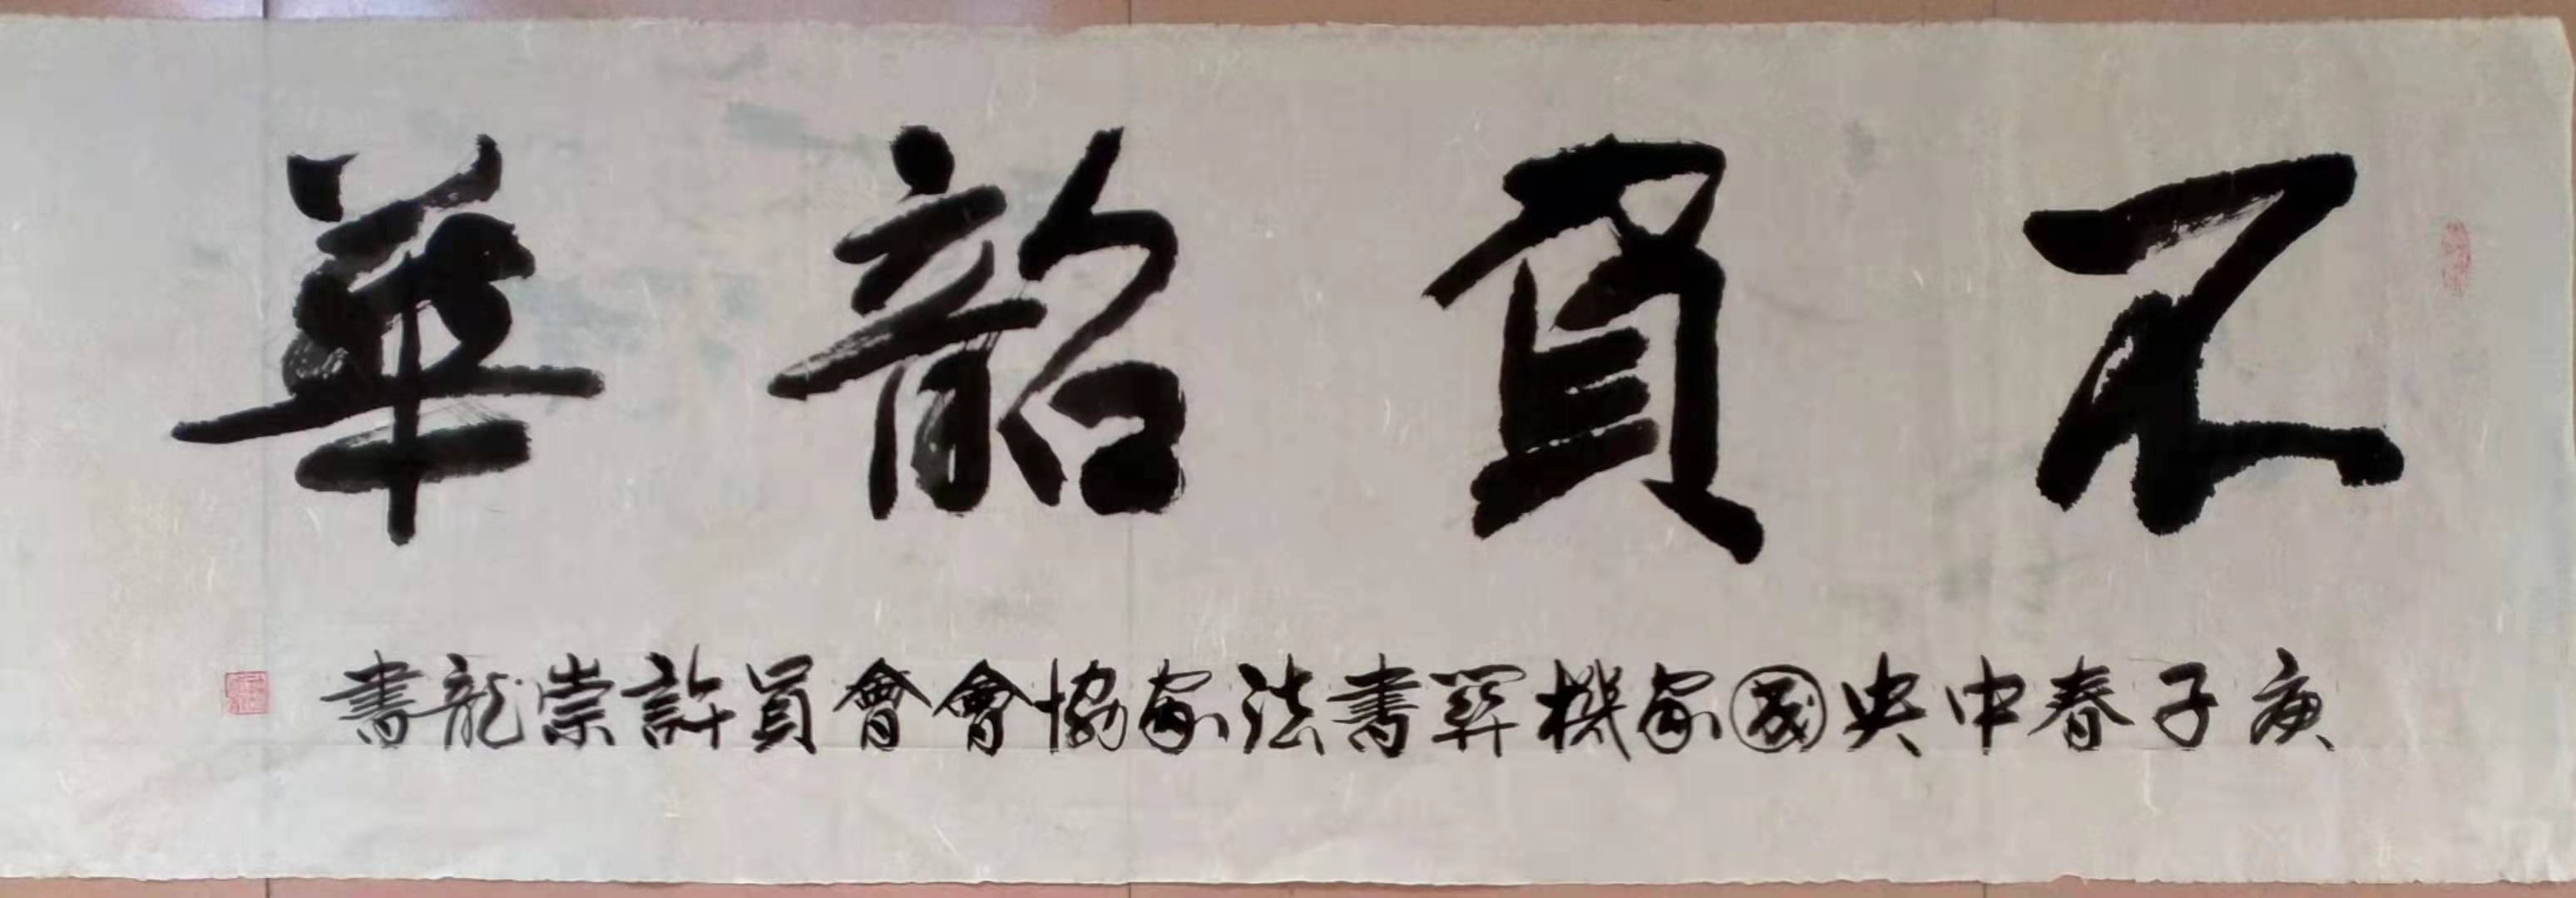 不負韶華
庚子春中央國家機関書法家協會會員許崇龍書